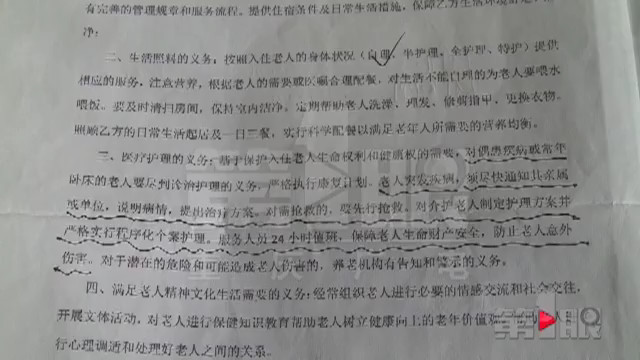 有完善的管理规章和服务流程。提供住宿条件及日常生活措施，保障乙方生活环境
净；
二、生活照料的义务：按照入住老人的身体状况（自理、半护理、全护理、特护）提供
相应的服务，注意营养，根据老人的需要或医嘱合理配餐，对生活不能自理的为老人要喂水
喂饭。要及时清扫房间，保持室内洁净。定期帮助老人洗澡、理发、修剪指甲、更换衣物。
照顾乙方的日常生活起居及一日三餐，实行科学配餐以满足老年人所需要的营养均衡。
三、医疗护理的义务：基于保护入住老人生命权利和健康权的需要，对偶患疾病或常年
卧床的老人要尽到诊治护理的义务，严格执行康复计划。老人突发疾病，须尽快通知其亲属
或单位，说明病情，提出治疗方案。对需抢救的，要先行抢救。对介护老人制定护理方案并
严格实行程序化个案护理。服务人员24小时值班，保障老人生命财产安全，防止老人意外
伤害。对于潜在的危险和可能造成老人伤害的，养老机构有告知和警示的义务。
四、满足老人精神文化生活需要的义务：经常组织老人进行必要的情感交流和社会交往，
开展文体活动，对老人进行保健知识教育帮助老人树立健康向上的老年价值观
行心理调适和处理好老人之间的关系。